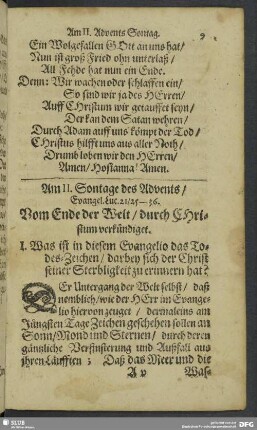 Am II. Advents Sontag. 9
Ein Wolgefallen GOtt an uns hat/
Nun ist groß Fried ohn unterlaß/
All Fehde hat nun ein Ende.
Denn: Wir wachen oder schlaffen ein/
So sind wir ja des HErren/
Auff Christum wir getauffet seyn/
Der kan dem Satan wehren/
Durch Adam auff uns kömpt der Tod/
Christus hilfft uns aus aller Noth/
Drumb loben wir den HErren/
Amen/ Hosianna! Amen.
Am II. Sontage des Advents/
Evangel. Luc. 21/25–36.
Vom Ende der Welt/ durch CHri-
stum verkündiget.
I. Was ist in diesem Evangelio das To-
des-Zeichen/ darbey sich der Christ
seiner Sterbligkeit zu erinnern hat?
DEr Untergang der Welt selbst/ daß
nemblich/ wie der HErr im Evange-
lio hiervon zeuget/ dermaleins am
Jüngsten Tage Zeichen geschehen sollen an
Sonn/ Mond und Sternen/ durch deren
gäntzliche Verfinsterung und Außfall aus
ihren Läufften; Daß das Meer und die
A v Was-
SLUB
DFG